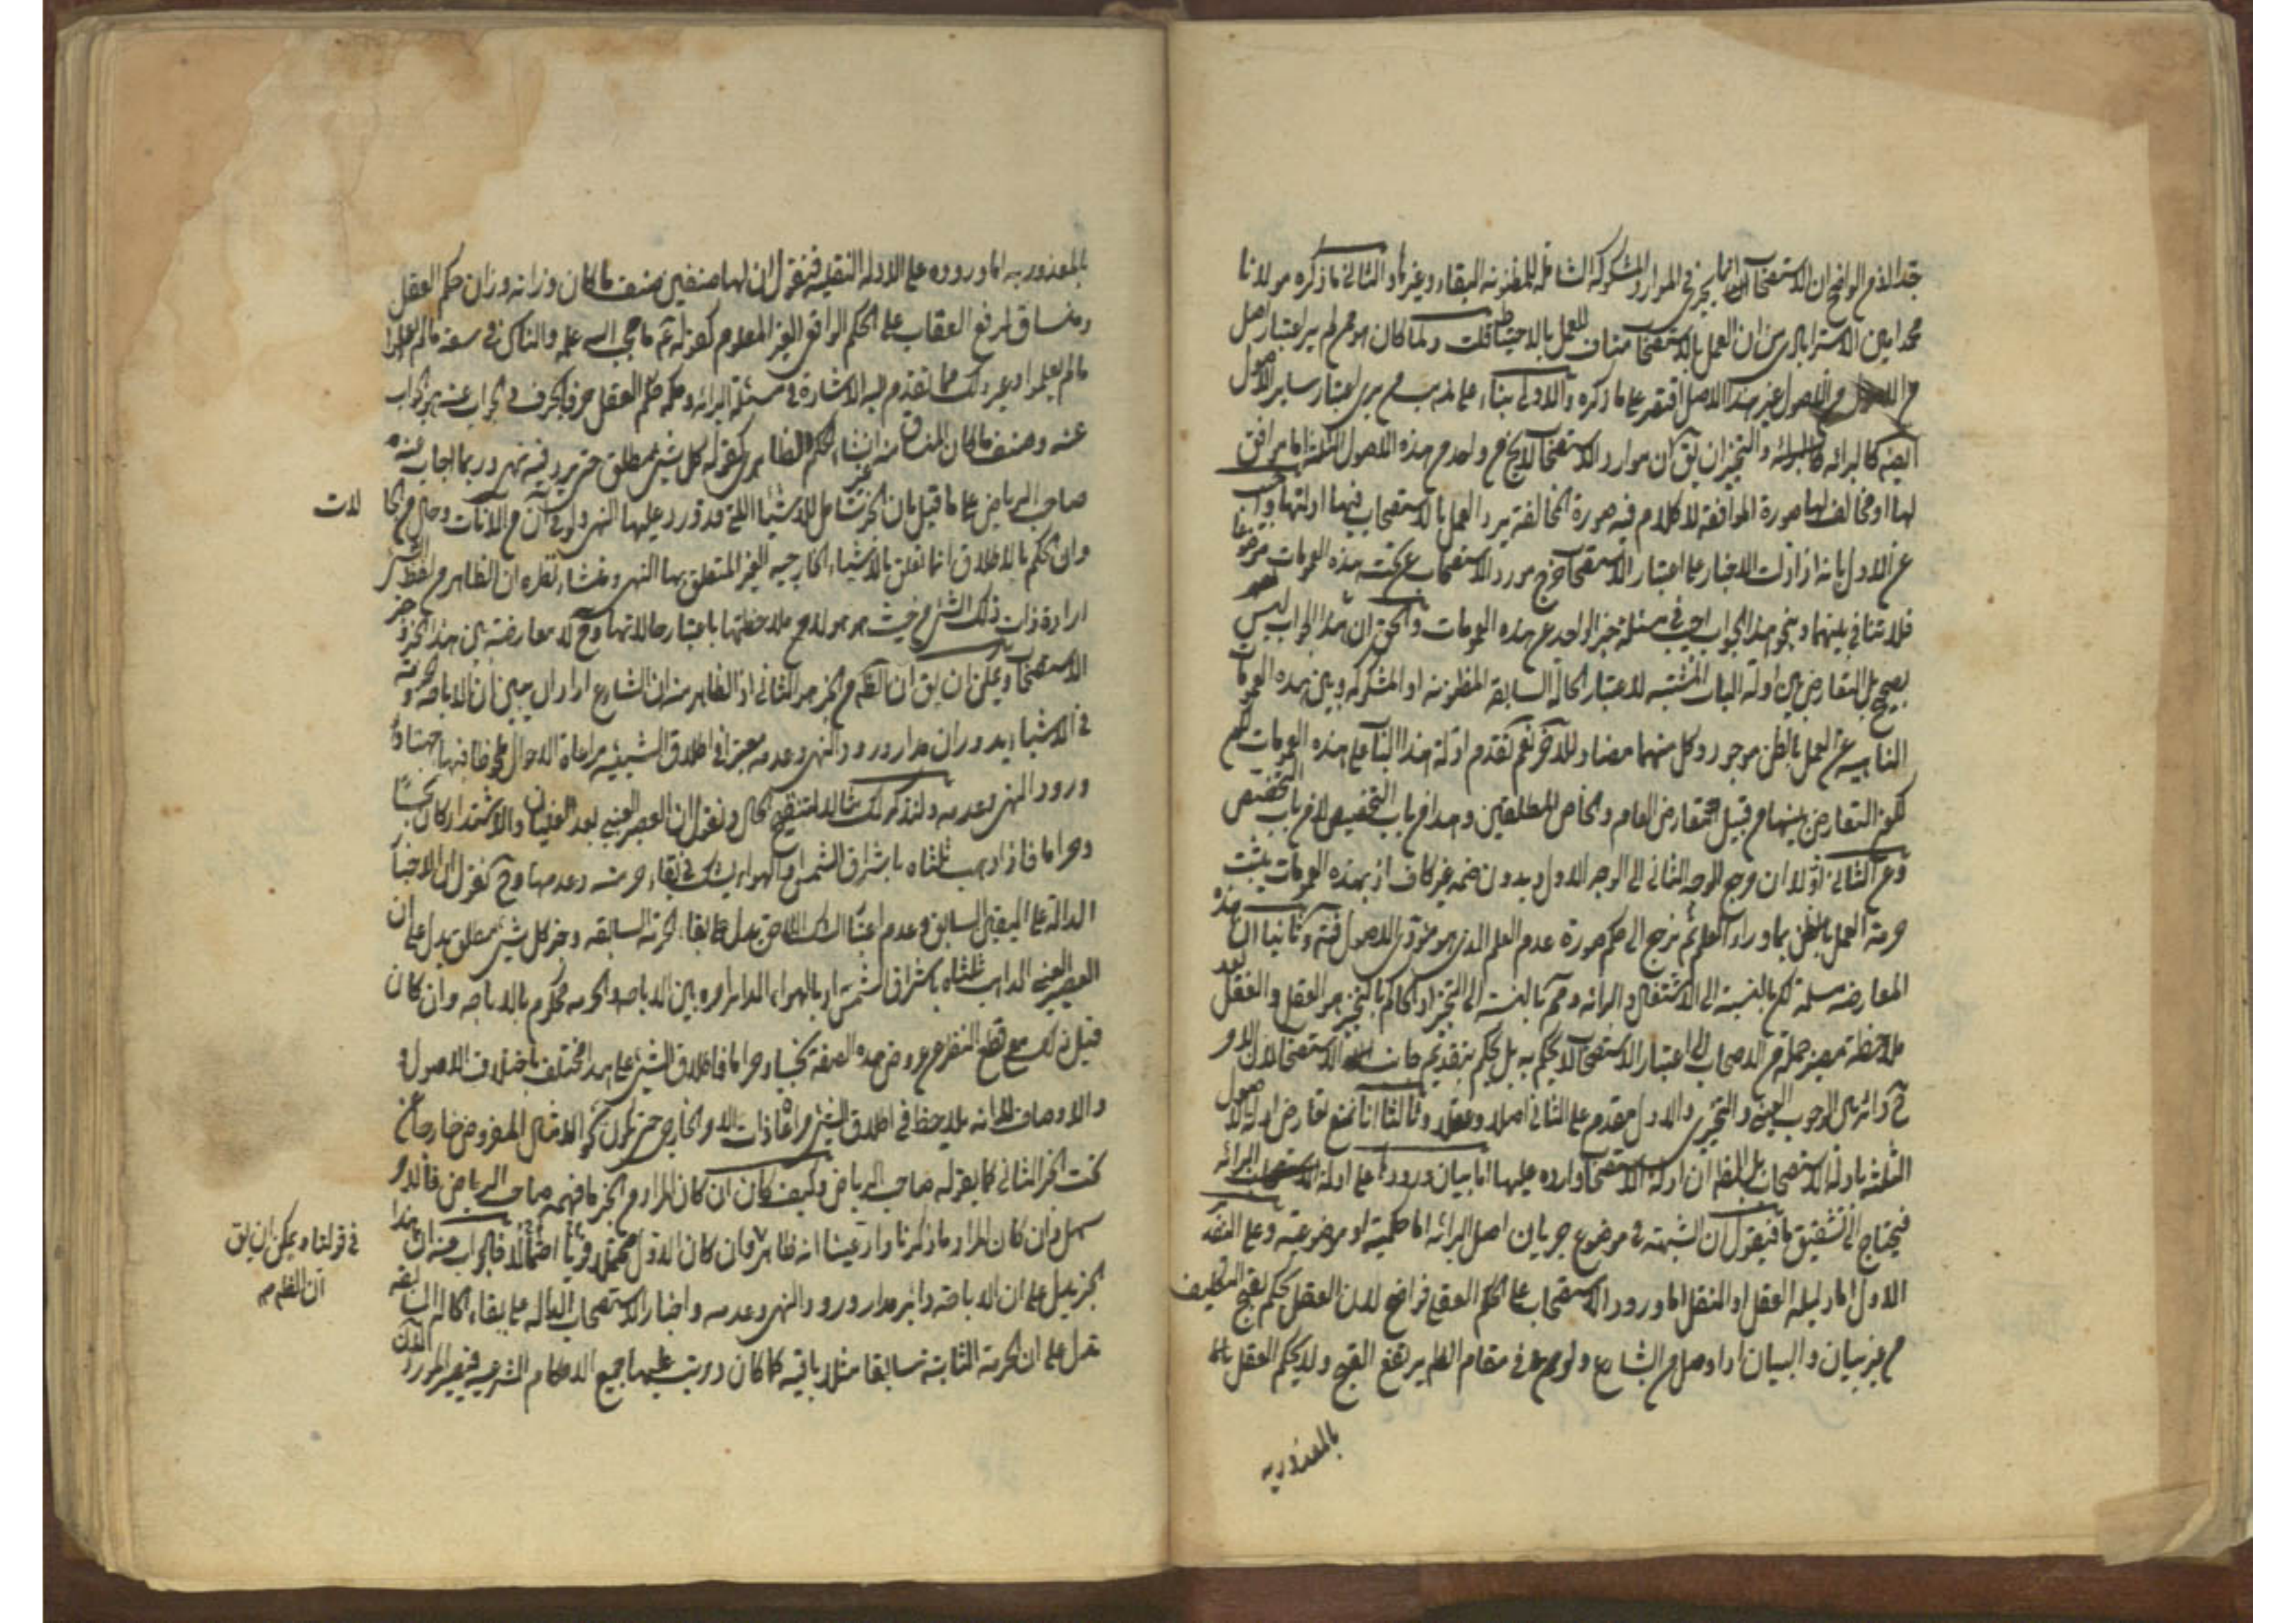 ان الاستصحاب انما يجرى فى الموارد المشكوكة الشاملة للمظنونة البقاء وغيرها والثانى ما ذكره مولانا
محمد امين الاسترابادى من ان العمل بالاستصحاب مناف للعمل بالاحتياط قلت ولما كان هو ممن لم ير اعتبار اصل
من الاصول غير هذا الاصل اقتصر على ما ذكره والاولى بناء على مذهب من يرى اعتبار ساير الاصول
ايضا كالبرائة والتخيير ان يق ان موارد الاستصحاب لا يخ من واحد من هذه الاصول الثلثة اما موافق
لها او مخالف لها صورة الموافقة لا كلام فيه صورة المخالفة يرد العمل بالاستصحاب فيها ادلتها واجيب
عن الاول بانه اذا دلت الاخبار على اعتبار الاستصحاب خرج مورد الاستصحاب عن تحت هذه العمومات موضوعا
فلا تنافى بينهما وبنحو هذا الجواب اجيب فى مسئلة خبر الواحد عن هذه العمومات والحق ان هذا الجواب ليس
بصحيح بل التعارض بين ادلة الباب المثبتة لاعتبار الحالة السابقة المظنونة او المشكوكة وبين هذه العمومات
الناهية عن العمل بالظن موجود وكل منهما مضاد للاخر نعم تقدم ادلة هذا الباب على هذه العمومات
لكون التعارض بينهما من قبيل تعارض العام والخاص المطلقين وهذا من باب التخصيص لا من باب التخصص
وعن الثانى اولا ان مرجع الوجه الثانى الى الوجه الاول وبدون ضمه غير كاف اذ بهذه العمومات يثبت
حرمة العمل بالظن بما وراء العلم ثم نرجع الى حكم صورة عدم العلم الذى هو مؤدى الاصول وثانيا ان هذه
المعارضة مسلمة لكن بالنسبة الى الاشتغال والبرائة ومم بالنسبة الى التخيير اذ الحاكم بالتخيير هو العقل والعقل بعد
ملاحظة مصير جملة من الاصحاب الى اعتبار الاستصحاب لا يحكم به بل يحكم بتقديم جانب الاستصحاب لان الامر
ح دائر بين الوجوب العينى والتخييرى والاول مقدم على الثانى اصلا وعقلا وثالثا انا نمنع تعارض ادلة الاصول
الثلثة بادلة الاستصحاب بل الظ ان ادلة الاستصحاب واردة عليها اما بيان ورودها على ادلة البرائة
فيحتاج الى تشقيق ما فيقول ان الشبهة فى موضوع جريان اصل البرائة اما حكمية او موضوعية وعلى التقدير
الاول اما دليله العقل او النقل اما ورود الاستصحاب على الحكم العقلى فواضح لان العقل يحكم بقبح التكليف
من غير بيان والبيان اذا وصل من الشارع ولو فى مقام الظاهر يرتفع القبح ولا يحكم العقل
بالمعذورية
بالمعذورية اما وروده على الادلة النقلية فنقول ان لها صنفين صنف ما كان وزانه وزان حكم العقل
ومساق لرفع العقاب على الحكم الواقعى الغير المعلوم كقوله ع ما حجب الله علمه والناس فى سعة ما لم يعلموا
ما لم يعلموا وغير ذلك مما تقدم اليه الاشارة فى مسئلة البرائة وحكمه حكم العقل حرفا بحرف فى الجواب عنه هو الجواب
عنه وصنف ما كان المساق منه انشاء الحكم الظاهرى كقوله كل شئ مطلق حتى يرد فيه نهى وربما اجاب عنه
صاحب الرياض على ما قيل بان الخبر شامل للاشياء التى قد ورد عليها النهى ولو فى آن من الآنات وحال من الحالات
وان الحكم بالاطلاق انما تعلق بالاشياء الخارجية الغير المتعلق بها النهى ومنشاء نظره ان الظاهر من لفظ الشئ
ارادة ذات ذلك الشئ من حيث هو هو لا مع ملاحظتها باعتبار حالاتها وح لا معارضة بين هذا الخبر
الاستصحاب ويمكن ان يق ان الظ من الخبر هو الثانى اذ الظاهر منه ان الشارع اراد ان يبين ان الاباحة وحرمته
فى الاشياء يدوران مدار ورود النهى وعدمه معتبرا فى اطلاق الشيئية مراعاة الاحوال ملحوظا فيها جهتا
ورود النهى وعدمه ولنذكر لك مثالا لتنقيح الحال ونقول ان العصير العنبى بعد الغليان والاشتداد كان نجسا
وحراما فاذا ذهب ثلثاه باشراق الشمس والهواء يشك فى بقاء حرمته وعدمها وح نقول ان الاخبار
الدالة على اليقين السابق وعدم اعتبار الشك اللاحق يدل على بقاء الحرمة السابقة وخبر كل شئ مطلق يدل على ان
العصير العنبى الذاهب ثلثاه باشراق الشمس او بالهواء الدائر امره بين الاباحة والحرمة محكوم بالاباحة وان كان
قبل ذلك مع قطع النظر عن عروض هذه الصفة نجسا وحراما فاطلاق الشئ على هذا مختلف باختلاف الاصول
والاوصاف لانه يلاحظ فى اطلاق الشئ مراعاة ذات الامر الخارجى حتى يكون نحو المثال المفروض خارجا عن
تحت الخبر الثانى كما يقوله صاحب الرياض وكيف كان ان كان المراد من الخبر ما فهمه صاحب الرياض فالامر
سهل وان كان المراد ما ذكرنا وادعينا انه ظاهر وان كان الاول محتملا قويا احتمالا فالجواب عنه ان هذا
الخبر يدل على ان الاباحة دائر مدار ورود النهى وعدمه واخبار الاستصحاب الدالة على بقاء الحالة السابقة
تدل على ان الحرمة الثابتة سابقا مثلا باقية كما كان ورتبت عليها جميع الاحكام الشرعية فيصير المورد
فى قولنا ويمكن ان يق
ان الظ م